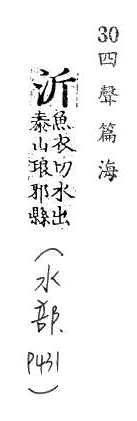 30四聲篇海
沂
魚衣切水出
泰山琅邪縣
(水部.P431)